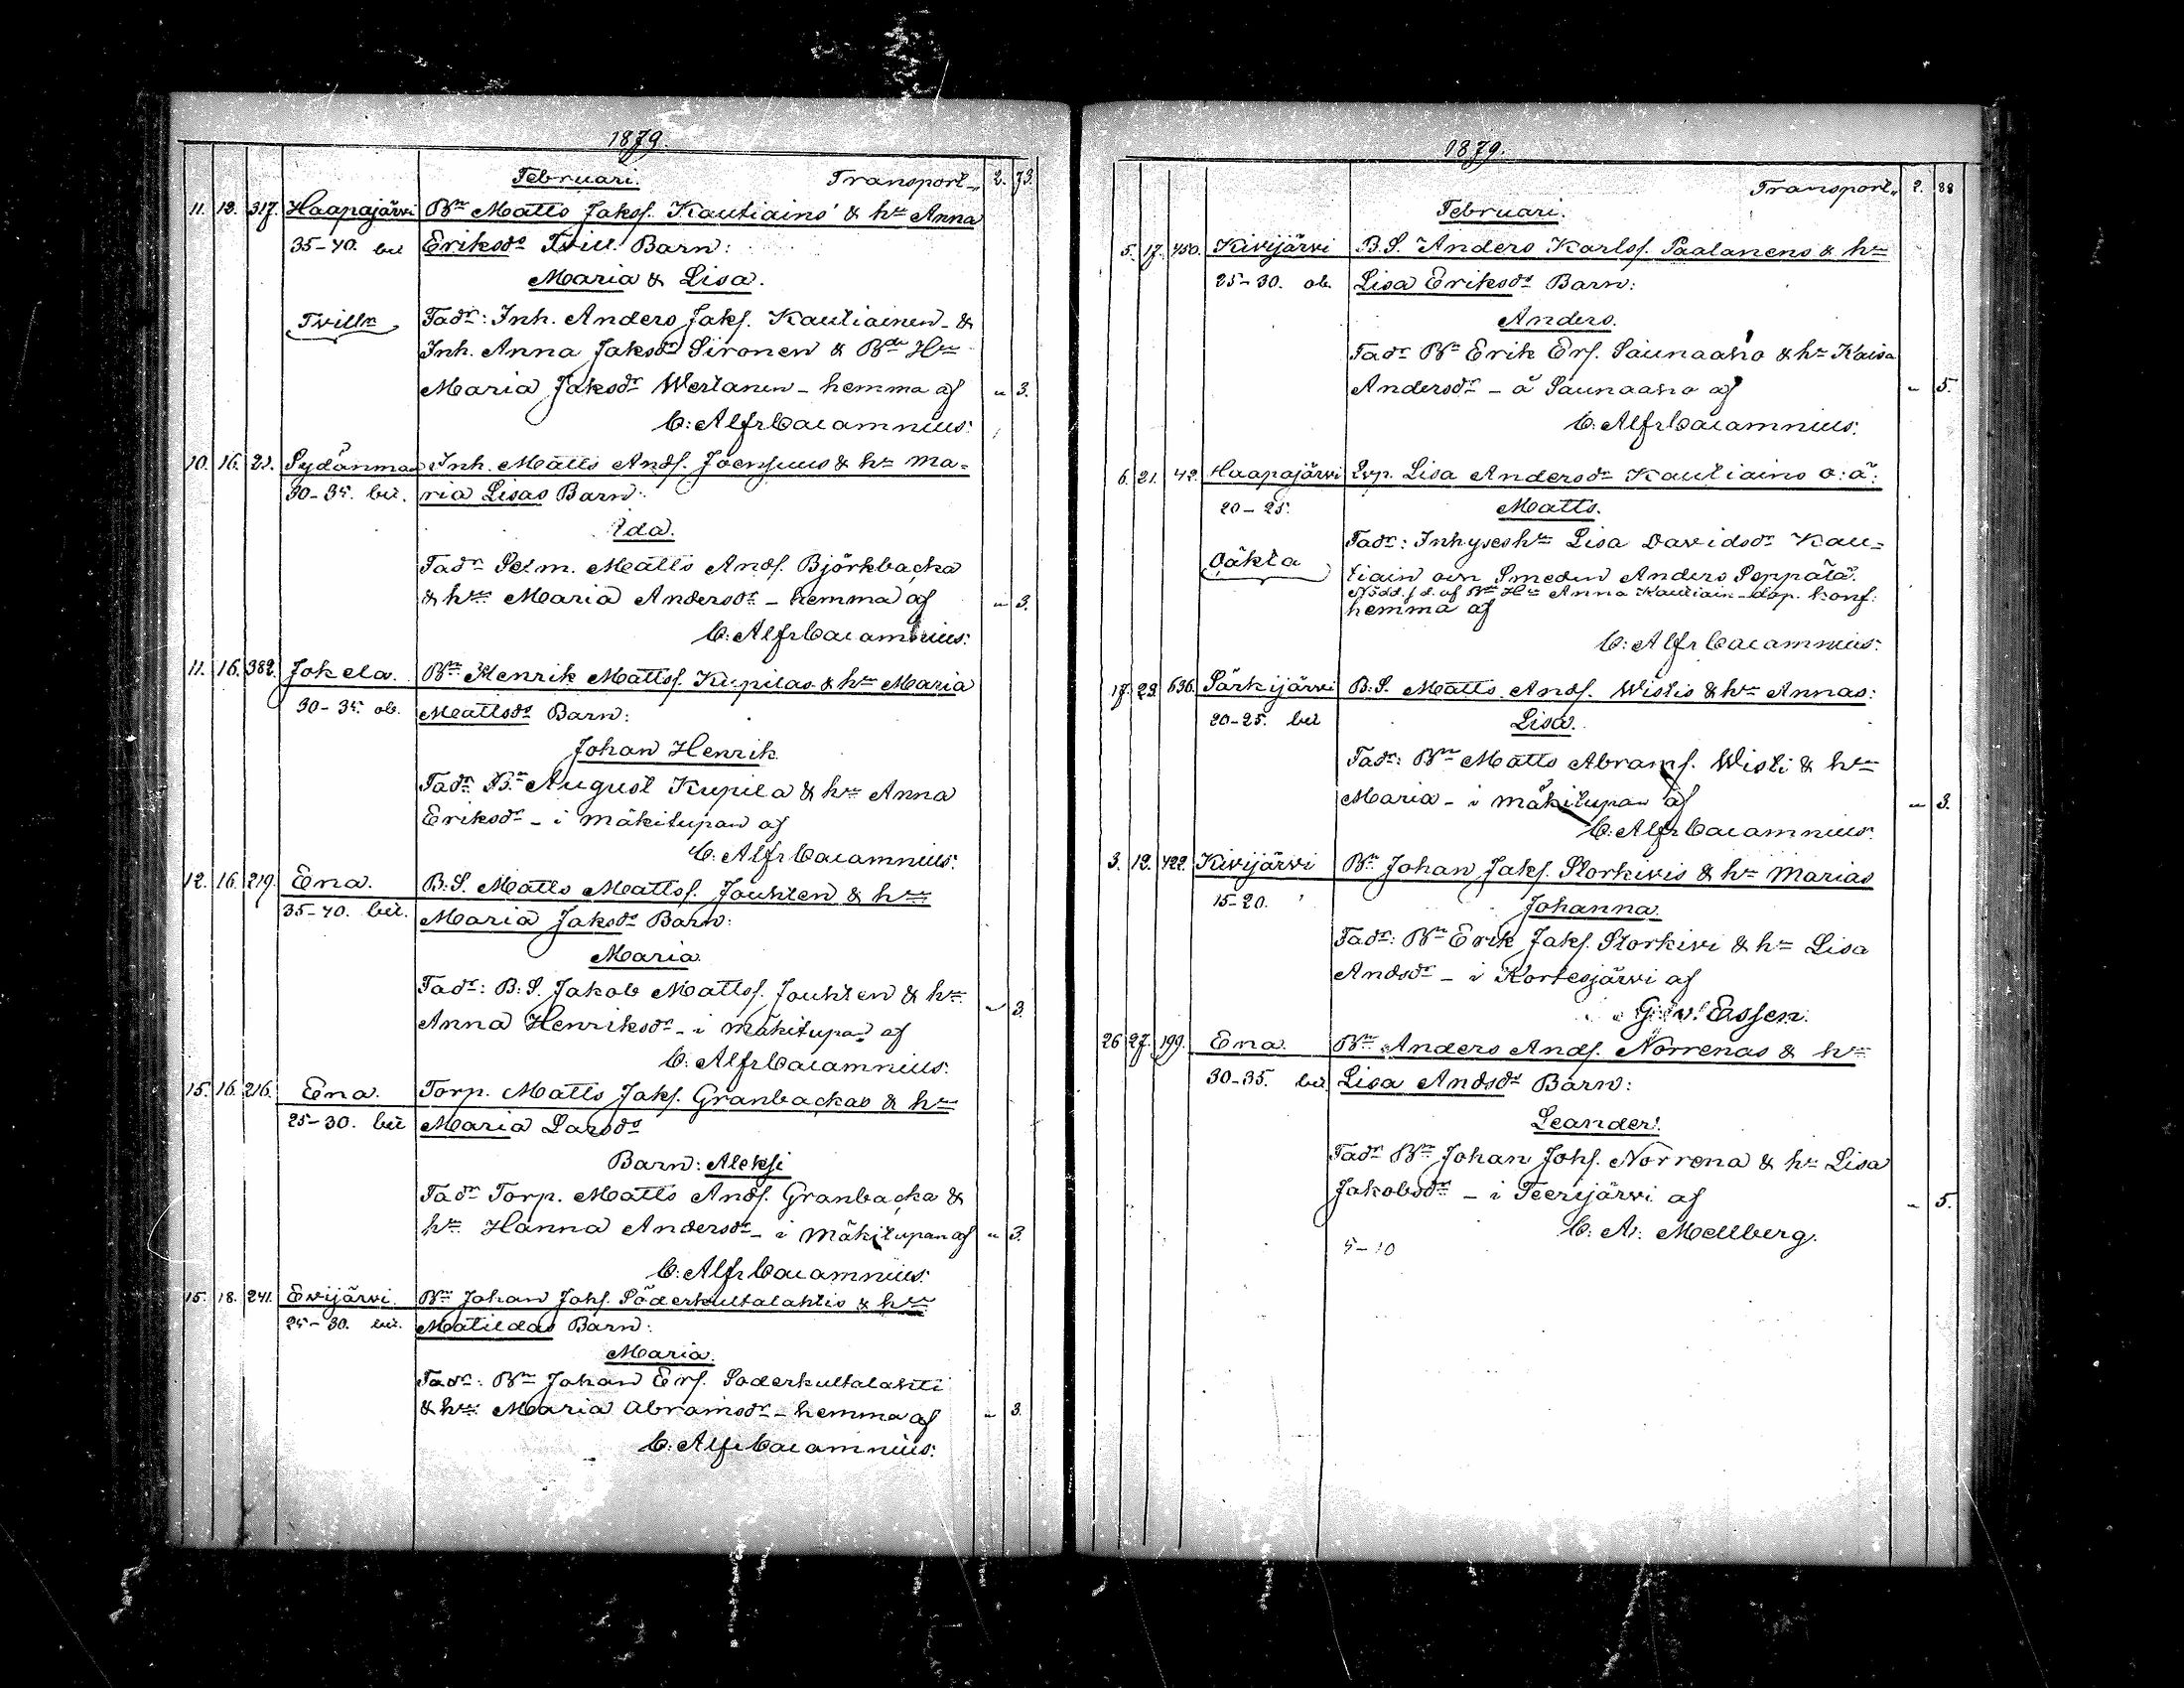 1879.
Februari. Transport „ 2. 73.
11. 12. 317. Haapajärvi Bn Matts Jakss. Kautiains & hn Anna
35-40. bet Eriksdrs Tvill. Barn:
Maria & Lisa.
Tvillr Fadr: Inh. Anders Jaks. Kautiainen & 
Inh. Anna Jaksdr Sironen & Bde Hn
Maria Jaksdr Wertanen - hemma af „ 3.
C: Alfr Cajamnius:
10. 16. 21. Sydänmaa Inh. Matts Ands. Joensuus & hn Ma=
30-35. bet. ria Lisas Barn:
Ida.
Fadr Sldm. Matts Ands. Björkbacka
& hn Maria Andersdr - hemma af „ 3.
C: Alfr Cajamnius:
11. 16. 382. Jokela. Bn Henrik Mattss. Kupilas & hn Maria
30-35. ob. Mattsdrs Barn:
Johan Henrik
Fadr Bn August Kupila & hn Anna
Eriksdr - i Mäkitupan af
C: Alfr Cajamnius:
12. 16. 219. Ena. B:S. Matts Mattss. Jouhten & hn
35-40. bet. Maria Jaksdrs Barn:
Maria.
Fadr: B:S. Jakob Mattss. Jouhten & hn „ 3.
Anna Henriksdr - i Mäkitupan af
C: Alfr Cajamnius:
15. 16. 216. Ena. Torp. Matts Jaks. Granbackas & hn
25-30. bet Maria Larsdrs
Barn: Aleksi
Fadr Torp. Matts Ands. Granbacka &
hn Hanna Andersdr - i Mäkitupan af „ 3.
C: Alfr Cajamnius:
15. 18. 241. Evijärvi. Bn Johan Johs. Söderkultalahtis & hn
25-30. bet. Matildas Barn:
Maria.
Fadr: Bn Johan Ers. Söderkultalahti
& hn Maria Abramsdr - hemma af „ 3.
C: Alfr Cajamnius:
1879.
Transport „ 2. 88
Februari.
5. 17. 450. Kivijärvi B.S. Anders Karlss. Paalanens & hn
25-30. ob. Lisa Eriksdrs Barn:
Anders.
Fadr Bn Erik Ers. Saunaaho & hn Kaisa
Andersdr - å Saunaaho af „ 5.
C: Alfr Cajamnius:
6. 21. 42. Haapajärvi Lvp. Lisa Andersdr Kautiains o: ä:
20-25. Matts.
Fadr: Inhyses hn Lisa Davidsdr Kau=
Oäkta tiain och Smeden Anders Seppälä.
Nödd. d. af Bn Hn Anna Kautiain - döp. konf:
hemma af
C: Alfr Cajamnius:
17. 23. 636. Särkijärvi B:S. Matts Ands. Wistis & hn Annas:
20-25. bet Lisa.
Fadr: Bn Matts Abrams. Wisti & hn
Maria - i Mäkitupan af „ 3.
C: Alfr Cajamnius:
3. 12. 422. Kivijärvi Bn Johan Jaks. Storkivis & hn Marias
15-20. Johanna.
Fadr: Bn Erik Jaks. Storkivi & hn Lisa
Andsdr - i Kortesjärvi af
G: v: Essen.
26 27. 199. Ena. Bn Anders Ands. Norrenas & hn
30-35. bet Lisa Andsdrs Barn:
Leander.
Fadr Bn Johan Johs. Norrena & hn Lisa
Jakobsdr - i Teerijärvi af „ 5.
C. A: Mellberg.
5-10